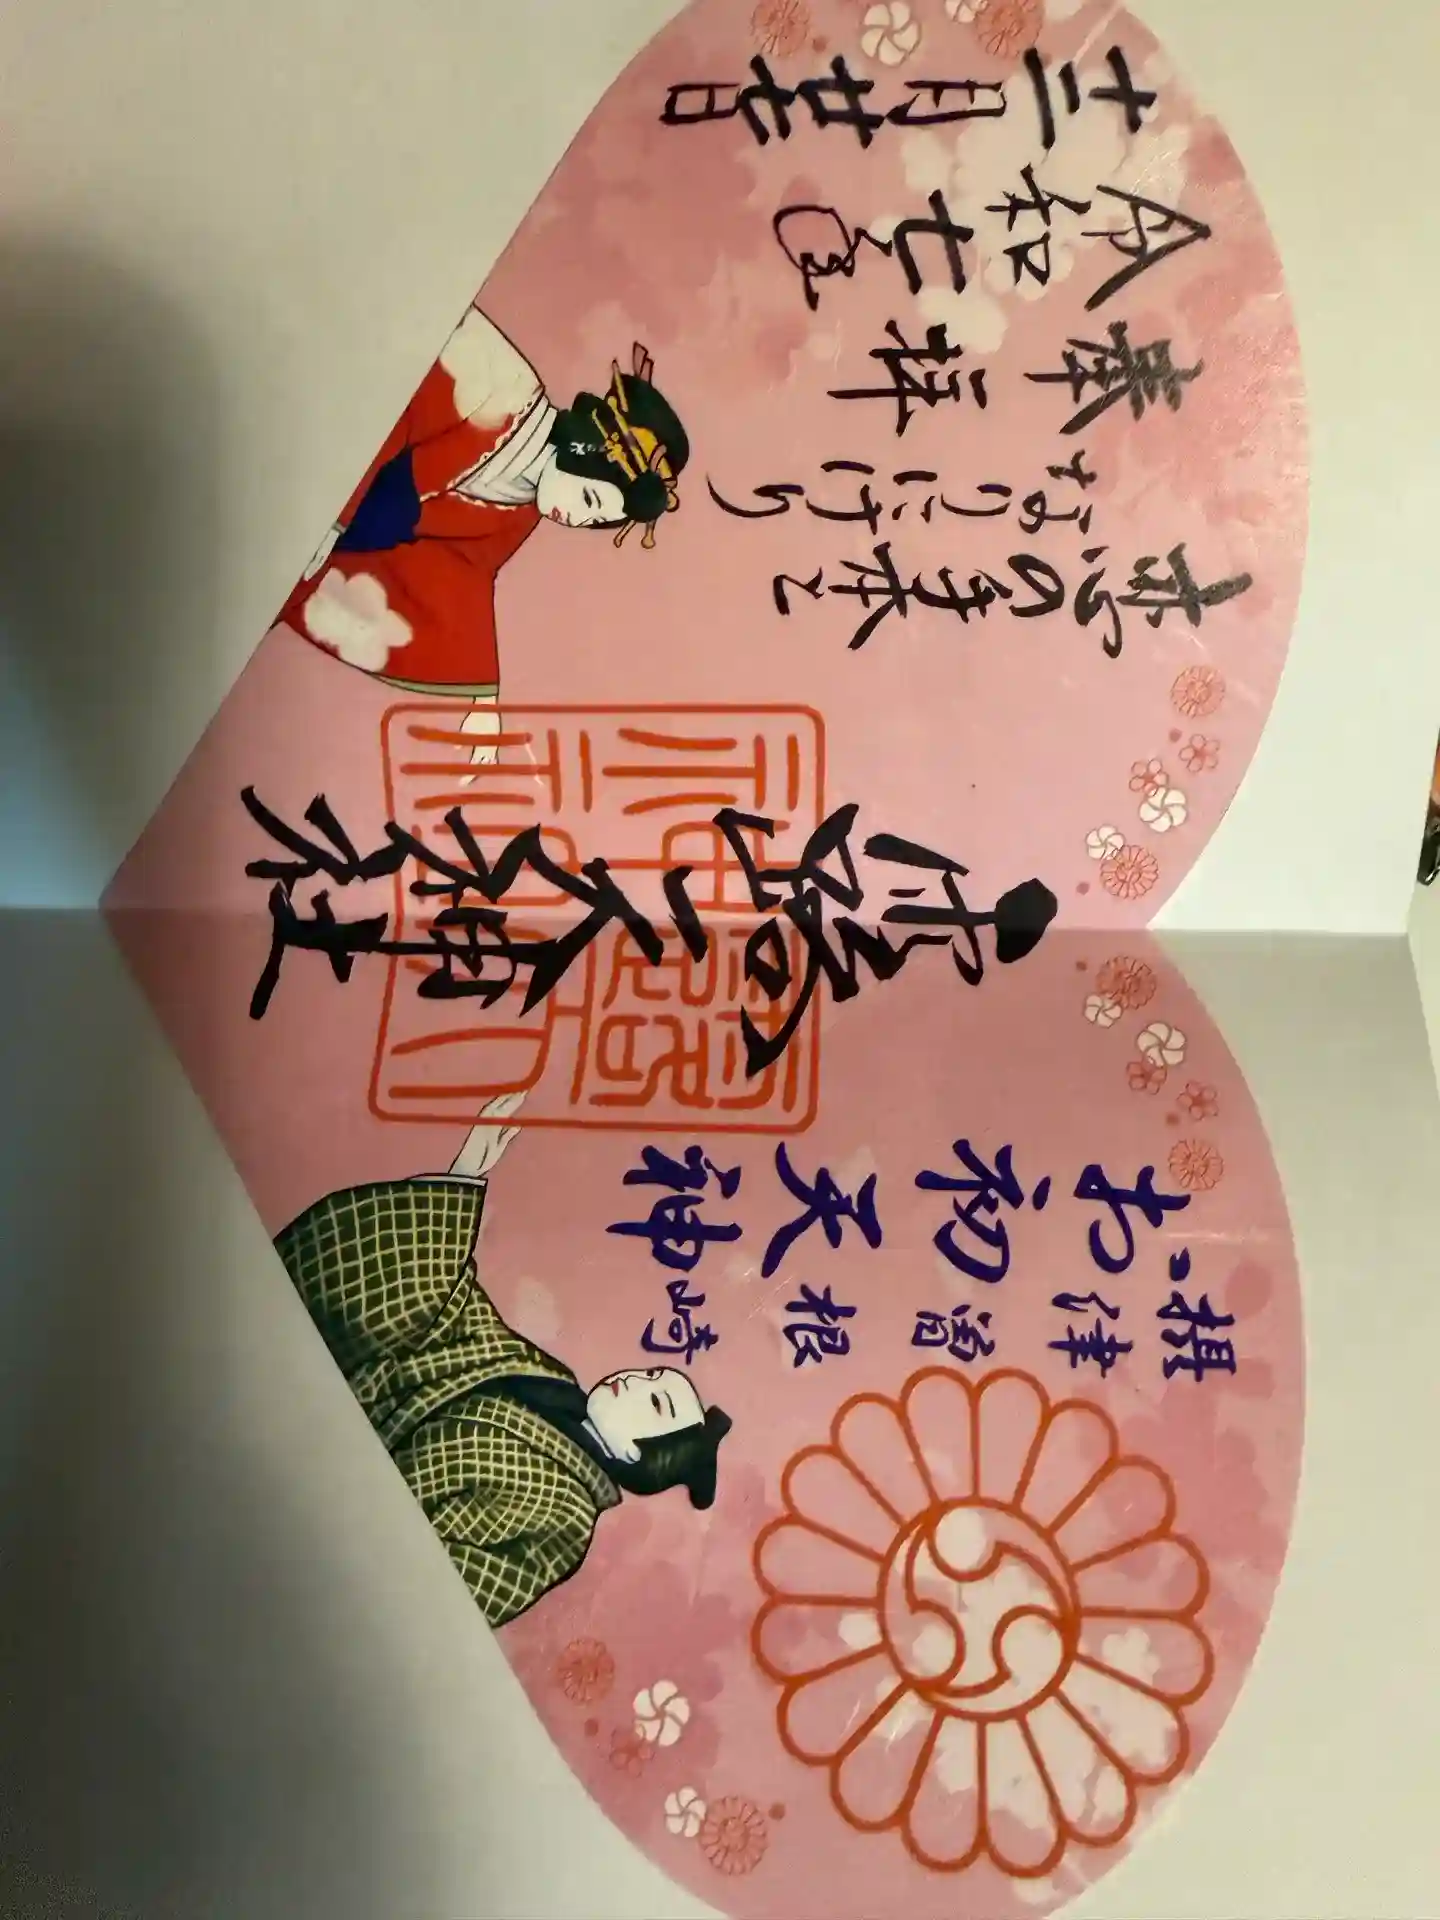 摂津曽根崎
お初天神
露天神社
恋の手本と
なりにけり
奉拝
令和七年
十二月廿七日